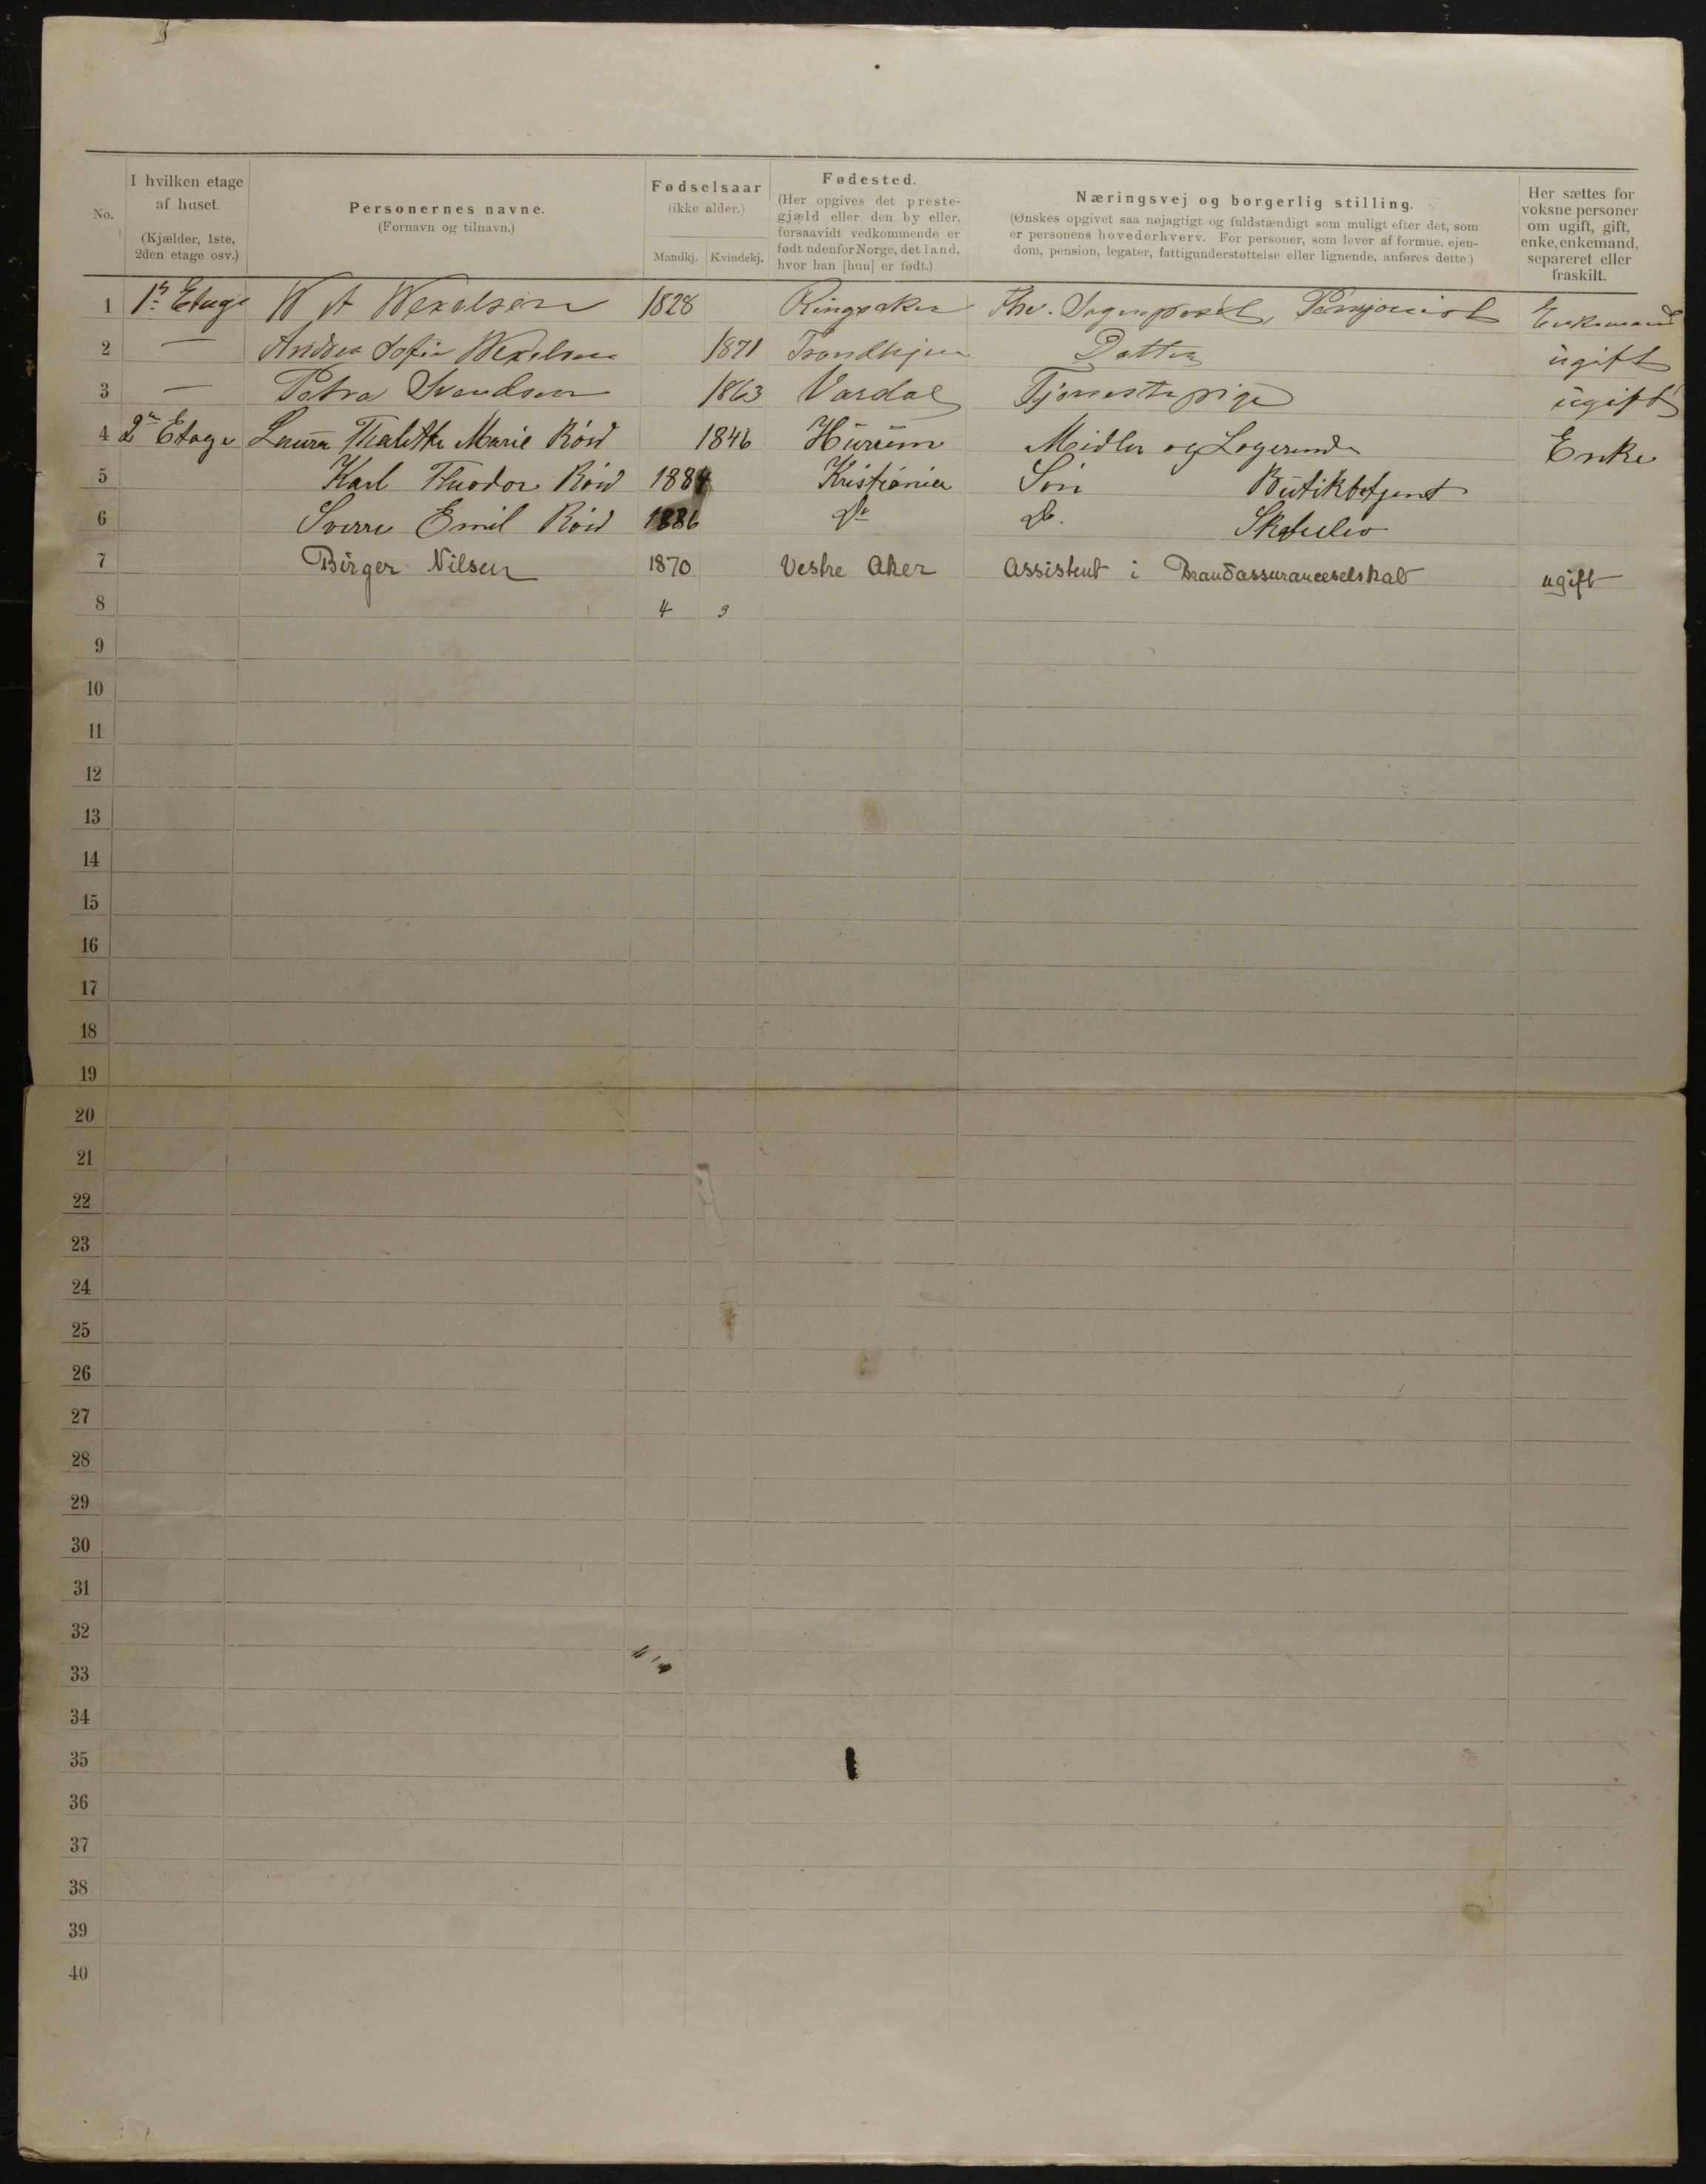 No.
I hvilken etage af huset. (Kjælder, 1ste, 2den etage osv.)
Personernes navne. (Fornavn og tilnavn.)
Fødselsaar (ikke alder.)
Mandkj. Kvindekj.
Fødested. (Her opgives det prestegjæld eller den by eller, forsaavidt vedkommende er født udenfor Norge, det land, hvor han [hun] er født.)
Næringsvej og borgerlig stilling. (Ønskes opgivet saa nøjagtigt og fuldstændigt som muligt efter det, som er personens hovederhverv. For personer, som lever af formue, ejendom, pension, legater, fattigunderstøttelse eller lignende, anføres dette.)
Her sættes for voksne personer om ugift, gift, enke, enkemand, separeret eller fraskilt.
1 1ste Etage W A Wexelsen 1828 Ringsaker Fhv. Sogneprest, Pensjonist Enkemand
2 — Andrea Sofie Wexelsen 1871 Trondhjem Datter ugift
3 — Petra Svendsen 1863 Vardal Tjenestepige ugift
4 2n Etage Laura Marie Röed 1846 Hurum Midler og Logerende Enke
5 Karl Theodor Röed 1884 Kristiania Sön Butikbetjent
6 Sverre Emil Röed 1886 Do Do.
7 Birger Nilsen 1870 Vestre Aker Assistent i Brandassuranceselskab ugift
8 4 3
9
10
11
12
13
14
15
16
17
18
19
20
21
22
23
24
25
26
27
28
29
30
31
32
33
34
35
36
37
38
39
40